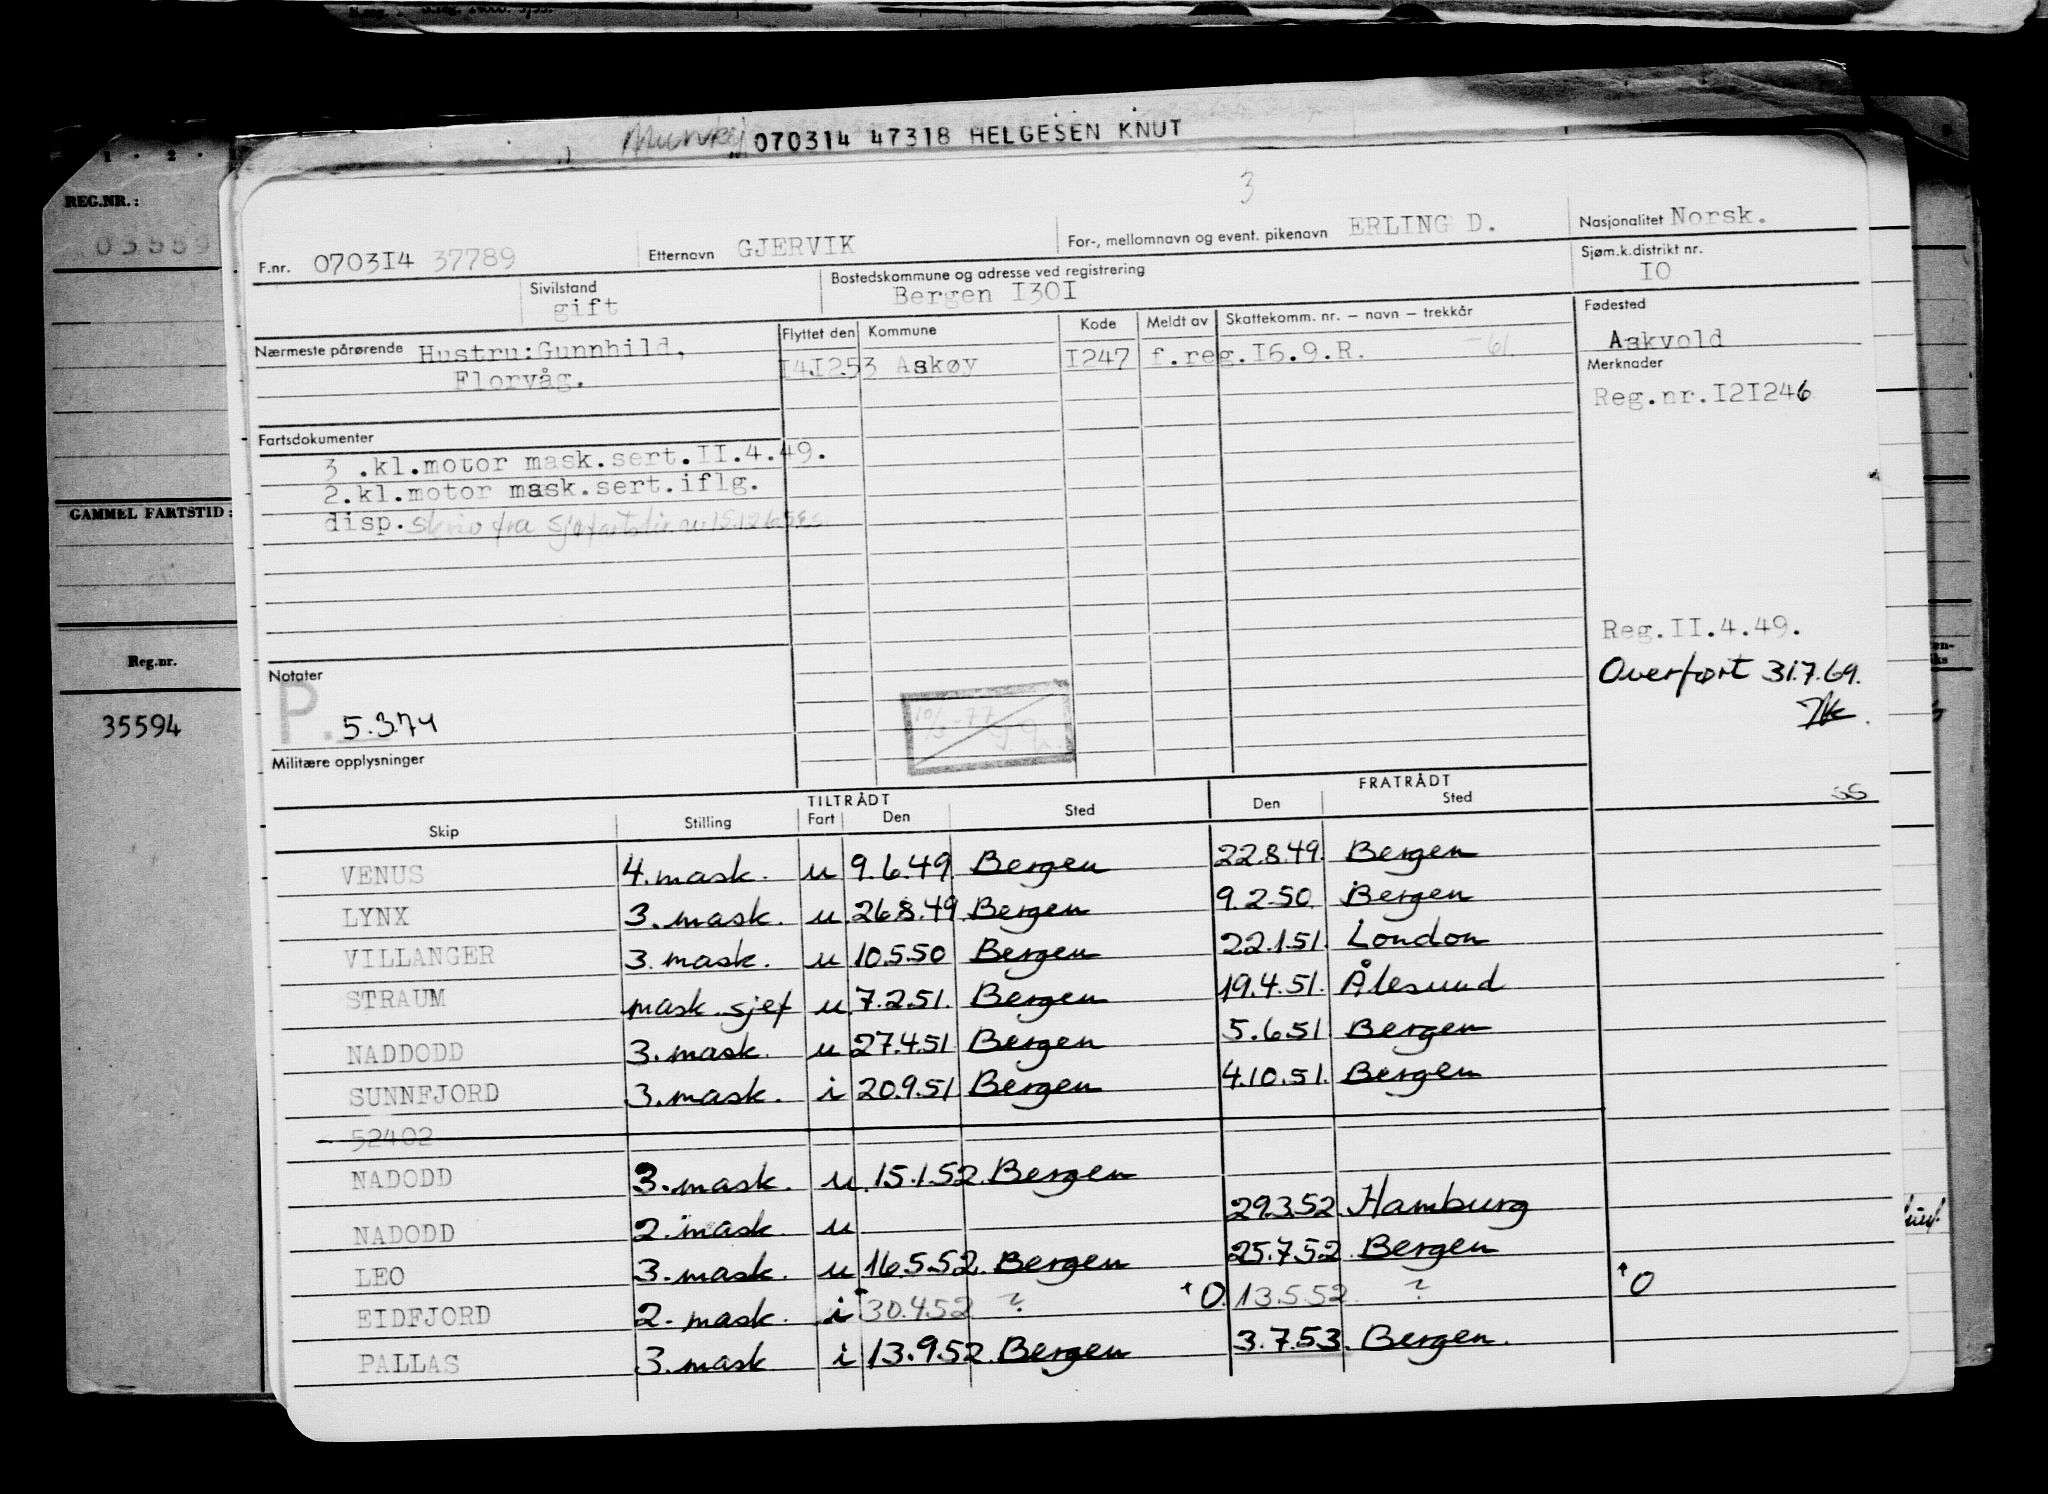 070314 47318 HELGESEN KNUT
3
REG.NR.:
F.nr. 0703I4 37789 Etternavn GJERVIK For-, mellomnavn og event. pikenavn ERLING D. Nasjonalitet Norsk.
Sivilstand gift Bostedskommune og adresse ved registrering Bergen I30I Sjøm.k.distrikt nr. IO
Nærmeste pårørende Hustru:Gunnhild,
Florvåg.
Flyttet den Kommune Kode Meldt av Skattekomm. nr. — navn — trekkår
I4.I2.53 Askøy I247 f.reg.I6.9.R. -61.
Fødested
Askvold
Merknader
Reg.nr.I2I246
Fartsdokumenter
3 .kl.motor mask.sert.II.4.49.
2.kl.motor mask.sert.iflg.
disp. skriv fra
GAMMEL FARTSTID:
Reg.nr.
35594
Reg.II.4.49.
Overført 31.7.69.
Notater
P. 5.3.74
10/3-77
Militære opplysninger
TILTRÅDT FRATRÅDT
Skip Stilling Fart Den Sted Den Sted
VENUS 4. mask. u 9.6.49. Bergen 22.8.49. Bergen
LYNX 3. mask. u. 26.8.49. Bergen 9.2.50. Bergen
VILLANGER 3. mask. u 10.5.50 Bergen 22.1.51. London
STRAUM mask. sjef u. 7.2.51. Bergen 19.4.51. Ålesund
NADDODD 3. mask. u 27.4.51 Bergen 5.6.51. Bergen
SUNNFJORD 3. mask. i 20.9.51. Bergen 4.10.51. Bergen
52402
NADODD 3. mask. u. 15.1.52. Bergen
NADODD 2. mask. u 29.3.52. Hamburg
LEO 3. mask. u 16.5.52. Bergen 25.7.52. Bergen
EIDFJORD 2. mask. i 30.4.52 ? O. 13.5.52. ? O
PALLAS 3. mask i 13.9.52. Bergen 3.7.53. Bergen.